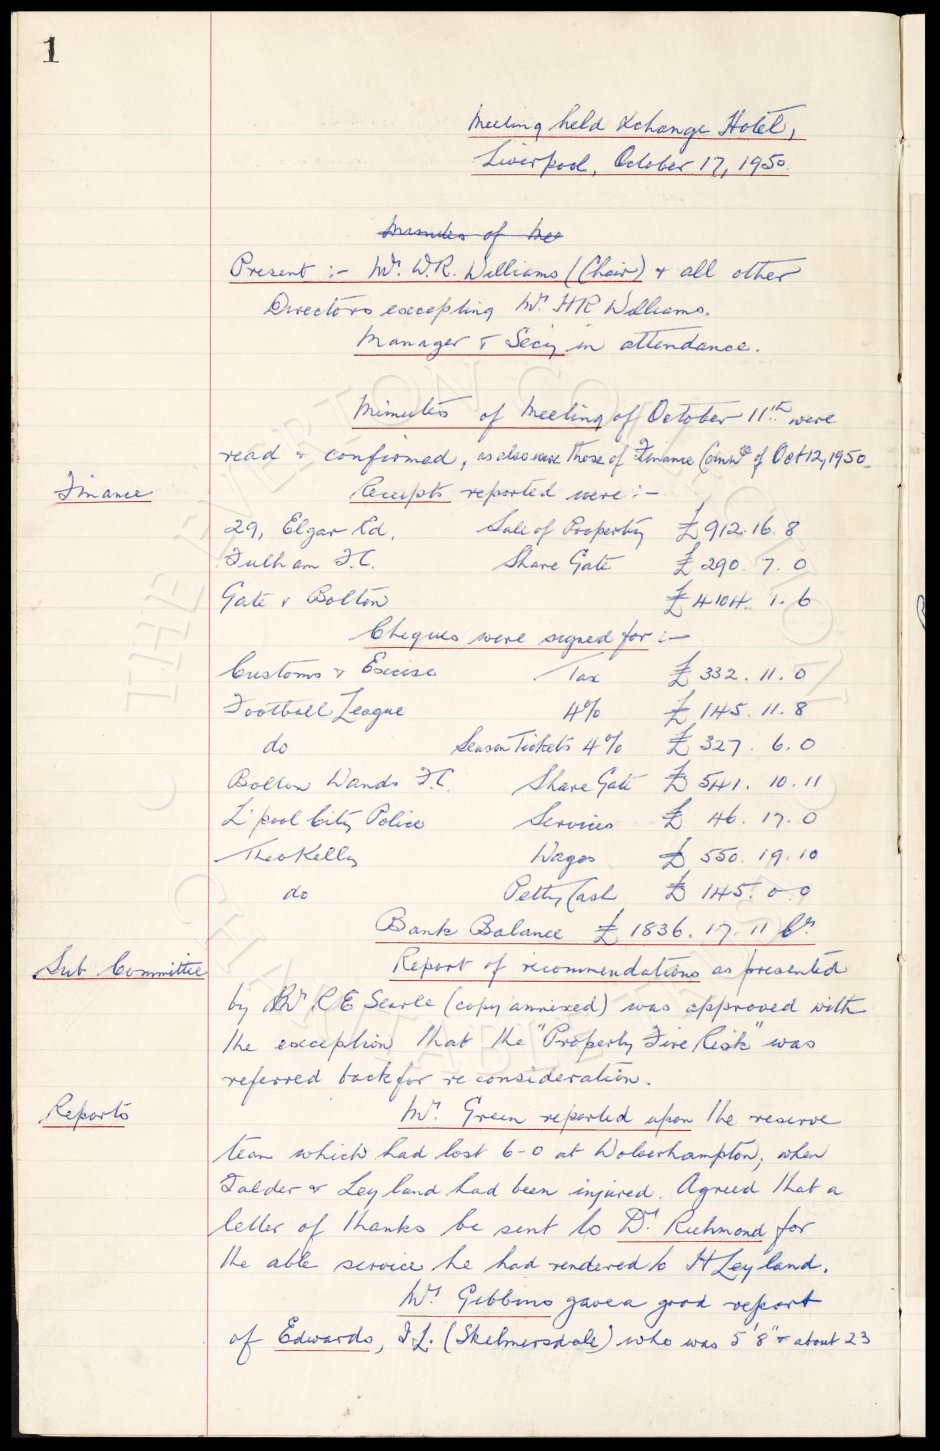 1
Meeting held Xchange Hotel,
Liverpool, October 17, 1950.
Minutes of Mee
Present :- Mr. W.R. Williams (Chair) & all other
Directors excepting Mr. H R Williams.
Manager & Secy in attendance.
Minutes of Meeting of October 11th were
read & confirmed, as also were those of Finance Commee of Oct 12, 1950.
Finance
Receipts reported were :-
29, Elgar Rd. Sale of Property £912.16.8
Fulham F.C. Share Gate £290.7.0
Gate v Bolton £4104.1.6
Cheques were signed for :-
Customs & Excise Tax £332.11.0
Football League 4% £145.11.8
do Season Tickets 4% £327.6.0
Bolton Wands F.C. Share Gate £541.10.11
L'pool City Police Services £46.17.0
Theo Kelly Wages £550.19.10
do Petty Cash £145.0.0
Bank Balance £1836.17.11 Cr.
Sub Committee
Report of recommendations as presented
by Mr R E Searle (copy annexed) was approved with
the exception that the "Property Fire Risk" was
referred back for reconsideration.
Reports
Mr. Green reported upon the reserve
team which had lost 6-0 at Wolverhampton, when
Falder & Leyland had been injured. Agreed that a
letter of thanks be sent to Dr. Richmond for
the able service he had rendered to H Leyland.
Mr. Gibbins gave a good report
of Edwards, I.L. (Skelmersdale) who was 5'8" & about 23
© THE EVERTON COLLECTION CHARITABLE TRUST